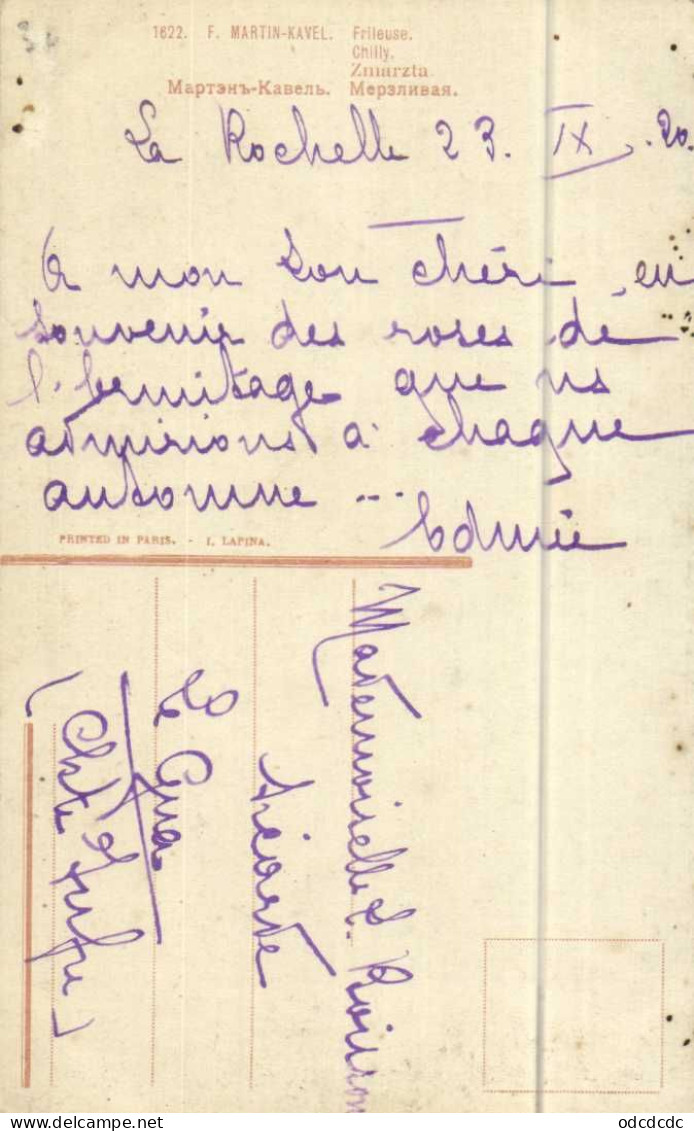 1622. F. MARTIN-KAVEL. Frileuse.
Chilly.
Zmarzta.
Мартэнъ-Кавель. Мерзливая.
La Rochelle 23. IX. 20.
A mon Lou chéri, en
souvenir des roses de
l'hermitage que ns
admirions à chaque
automne ...
Edmée
PRINTED IN PARIS. - I. LAPINA.
Mademoiselle L.
Le Gua
(Chte Infre)
odcdcdc